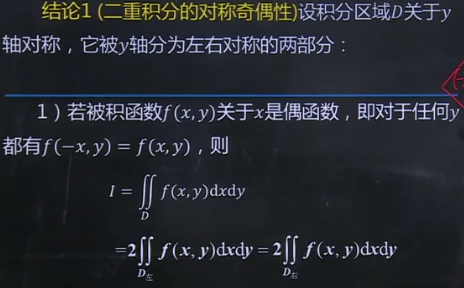 结论1 (二重积分的对称奇偶性)设积分区域D关于y
轴对称，它被y轴分为左右对称的两部分：
1）若被积函数f(x,y)关于x是偶函数，即对于任何y
都有f(−x,y) = f(x,y)，则
I = ∬_D f(x,y)dxdy
=2∬_{D左} f(x,y)dxdy = 2∬_{D右} f(x,y)dxdy